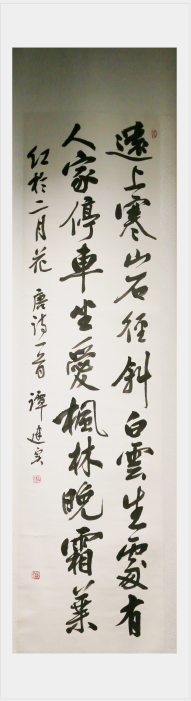 遠上寒山石徑斜白雲生處有
人家停車坐愛楓林晚霜葉
红於二月花 唐诗一首 譚建